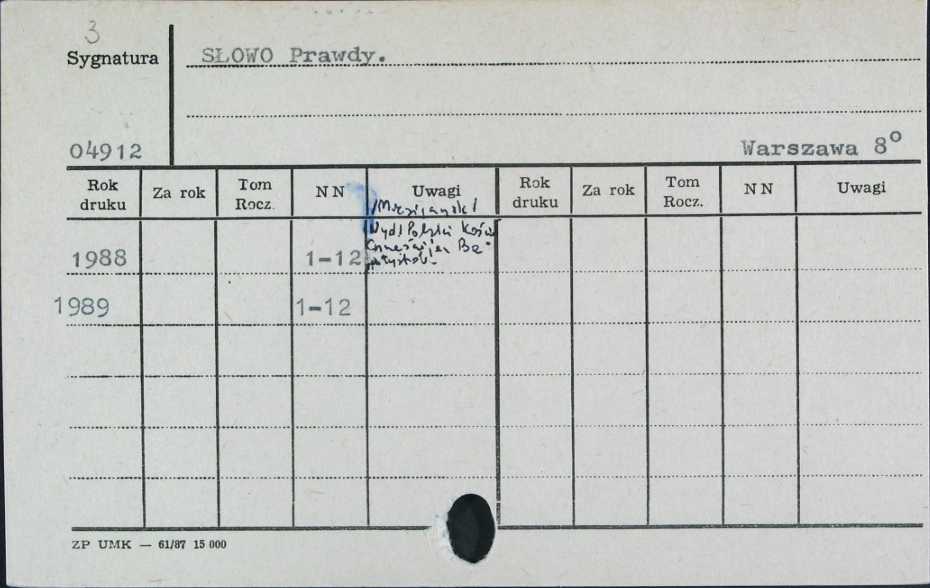 3
Sygnatura SŁOWO Prawdy.
04912 Warszawa 8°
Rok druku Za rok Tom Rocz. NN Uwagi Rok druku Za rok Tom Rocz. NN Uwagi
/Miesięcznik/
Wyd: Polski Kośc.
1988 1-12 Chrześcijan Ba-
ptystów.
1989 1-12
ZP UMK — 61/87 15 000